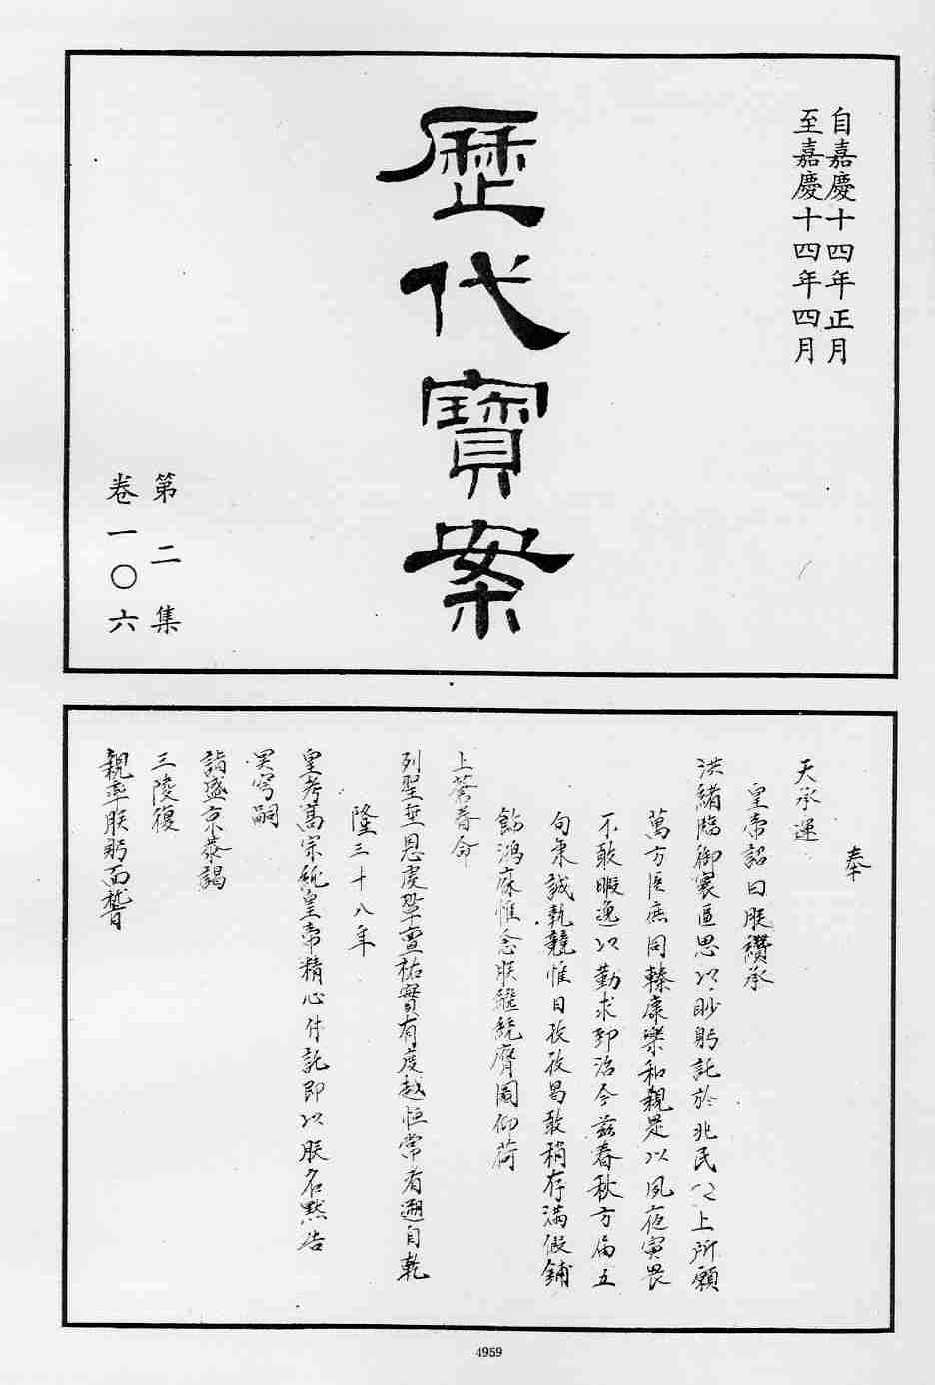 自嘉慶十四年正月
至嘉慶十四年四月
歷代寶案
第二集
卷一〇六
奉
天承運
皇帝詔曰朕纘承
洪緒臨御寰區思以眇躬託於兆民之上所願
萬方臣庶同臻康樂和親是以夙夜寅畏
不敢暇逸以勤求郅治今茲春秋方屆五
旬秉誠執競惟日孜孜曷敢稍存滿假鋪
飾鴻庥惟念朕繼統膺圖仰荷
上蒼眷命
列聖垂恩虔鞏亶祐實有度越恒常者遡自乾
隆三十八年
皇考高宗純皇帝精心付託即以朕名默告
昊穹嗣
詣盛京恭謁
三陵復
親率朕躬面
4959